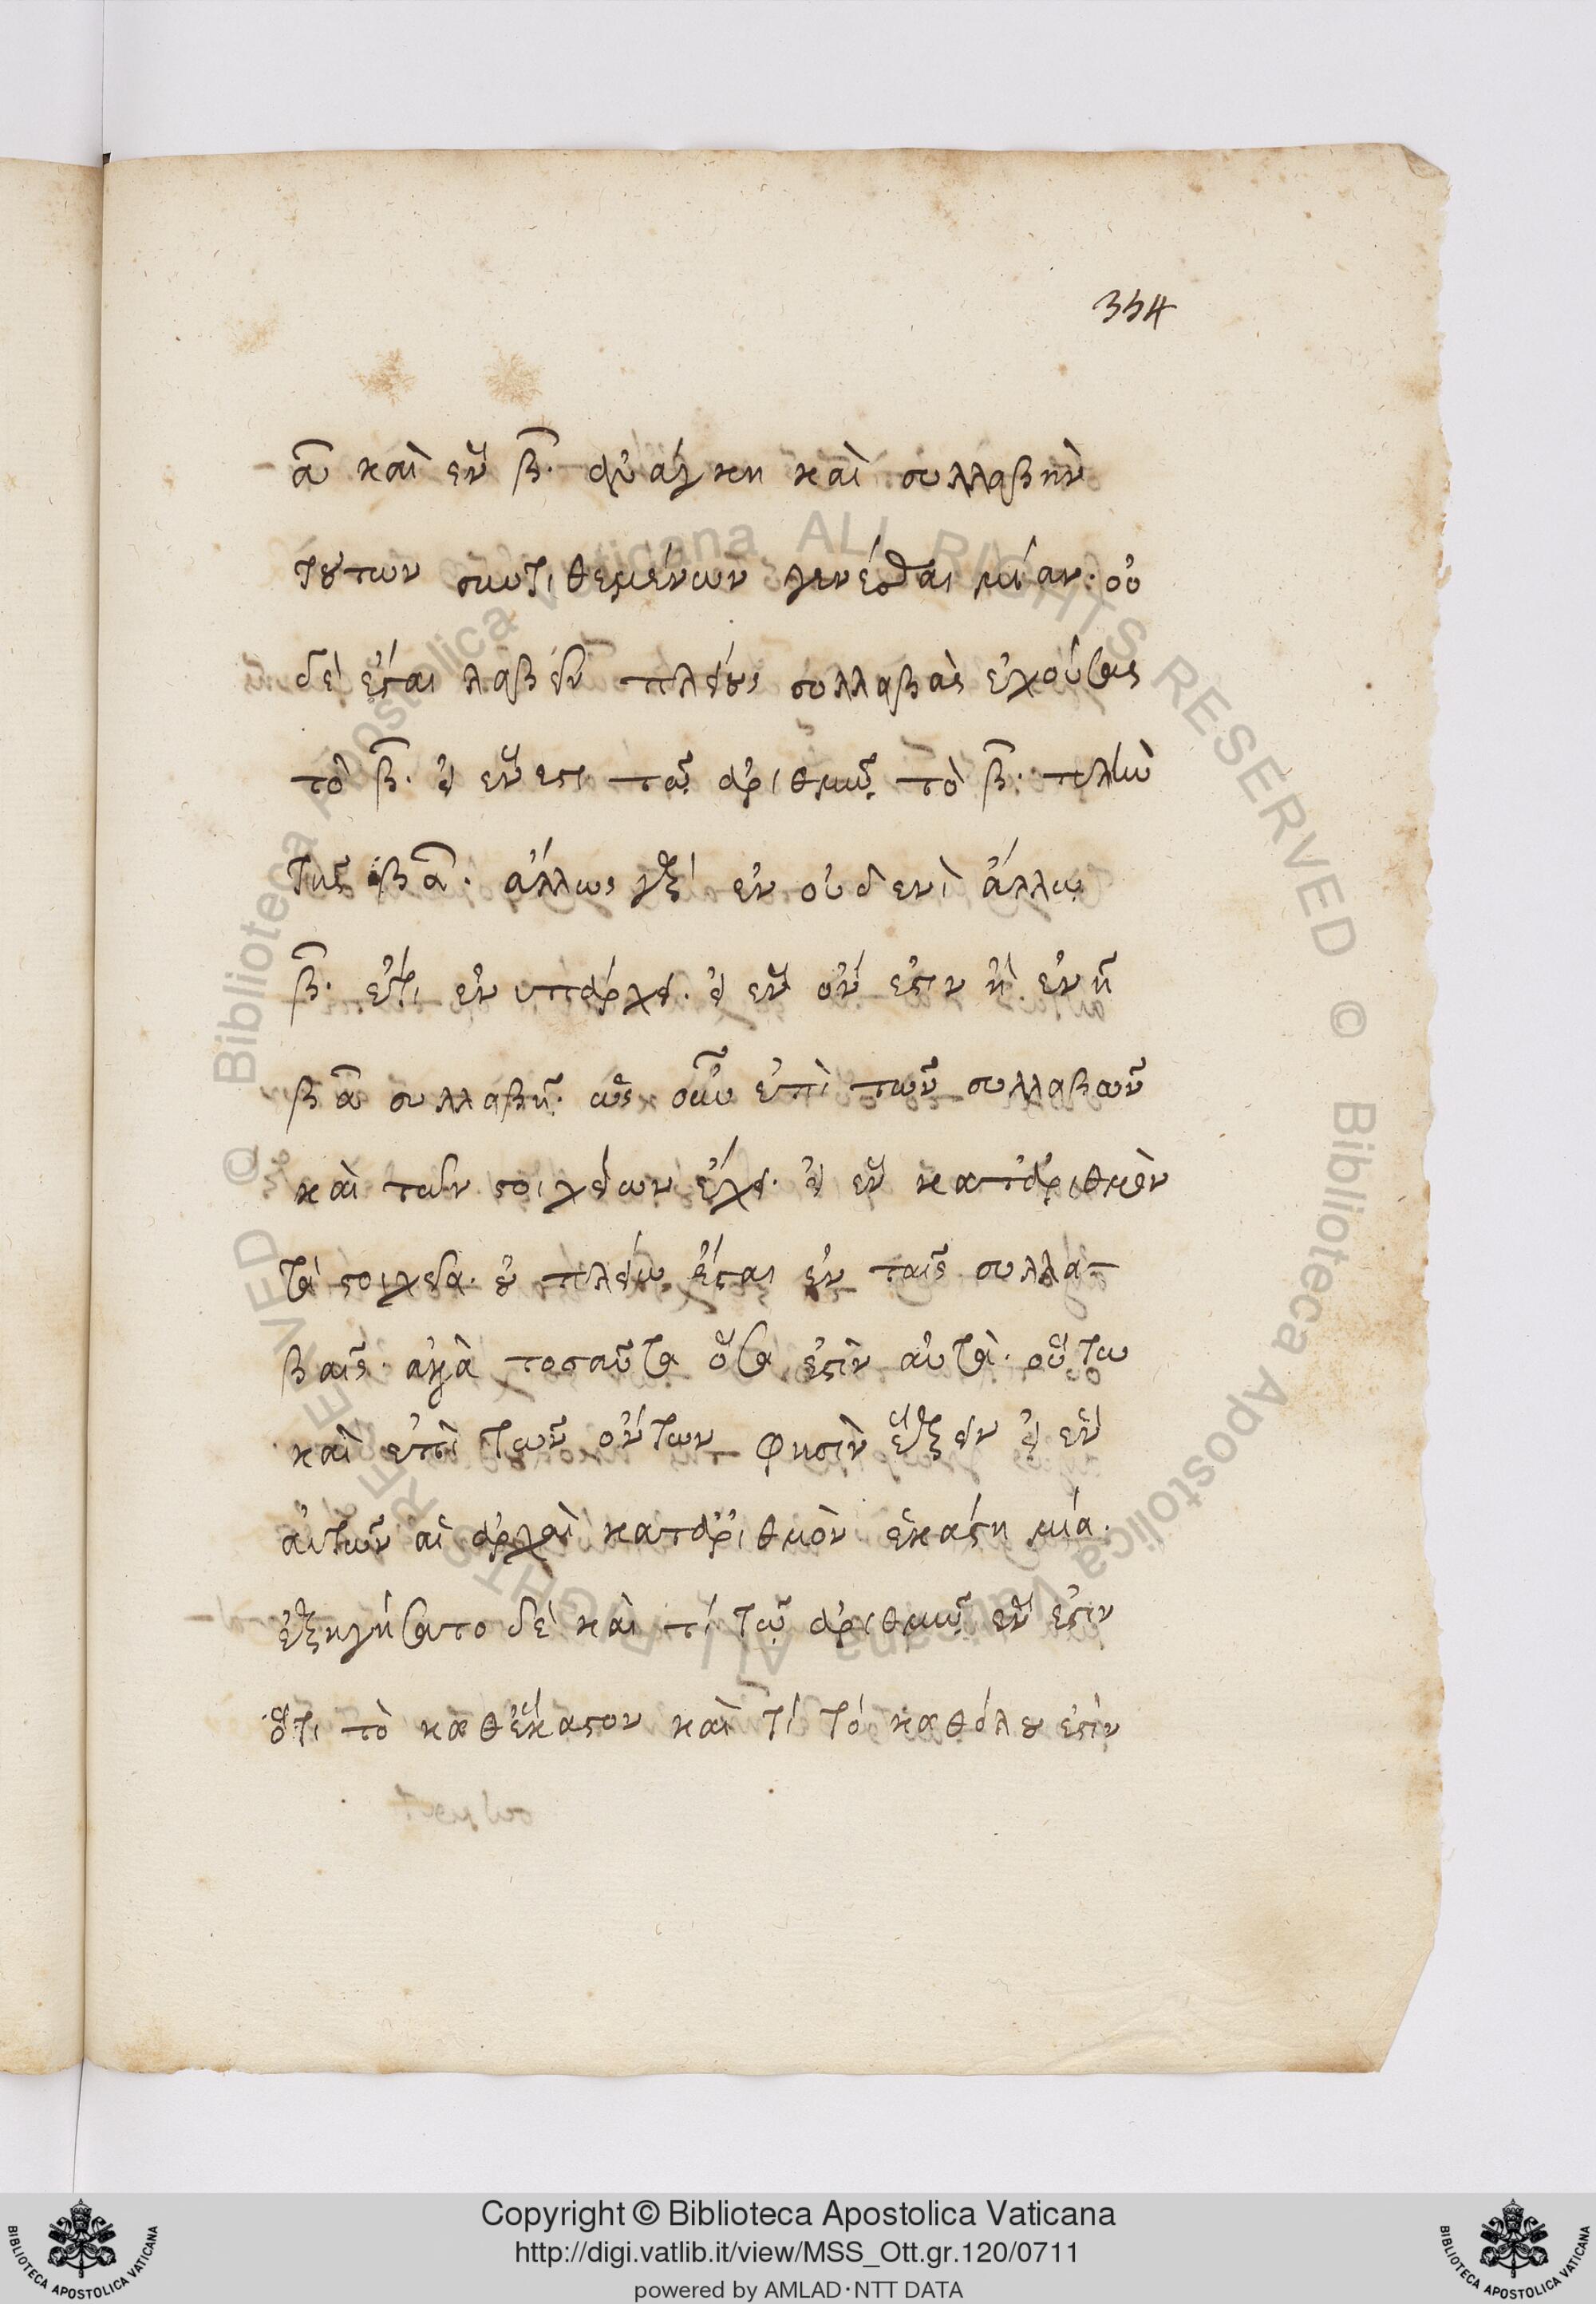 354
α̅ καὶ ἓν β̅· ἀνάγκη καὶ συλλαβὴν
τούτων συντιθεμένων γενέσθαι μίαν· οὐ
δὲ ἔσται λαβεῖν πλείους συλλαβὰς ἐχούσας
τὸ β̅· εἰ ἕν ἐστι τῷ ἀριθμῷ τὸ β̅· πλὴν
τῆς βα̅· ἄλλως γὰρ ἐν οὐδενὶ ἄλλω
β̅· ἔτι ἓν ὑπάρχει· εἰ ἓν ὄν ἐστιν ἢ ἐν τῇ
βα̅ συλλαβῇ· ὡς οὖν ἐπὶ τῶν συλλαβῶν
καὶ τῶν στοιχείων ἔχει· εἰ ἓν κατ' ἀριθμὸν
τὰ στοιχεῖα· οὐ πλείω ἔσται ἐν ταῖς συλλα-
βαῖς· ἀλλὰ τοσαῦτα ὅσα ἐστὶν αὐτά· οὕτω
καὶ ἐπὶ τῶν ὄντων φησὶν ἕξειν εἰ ἓν
αὐτῶν αἱ ἀρχαὶ κατ' ἀριθμὸν ἑκάστη μία·
ἐξηγήσατο δὲ καὶ τί τῷ ἀριθμῷ ἕν ἐστιν
ὅτι τὸ καθ' ἕκαστον καὶ τί τὸ καθόλου ἐστὶν
Copyright © Biblioteca Apostolica Vaticana
http://digi.vatlib.it/view/MSS_Ott.gr.120/0711
powered by AMLAD·NTT DATA
BIBLIOTECA APOSTOLICA VATICANA
BIBLIOTECA APOSTOLICA VATICANA
© Biblioteca Apostolica Vaticana ALL RIGHTS RESERVED © Biblioteca Apostolica Vaticana ALL RIGHTS RESERVED